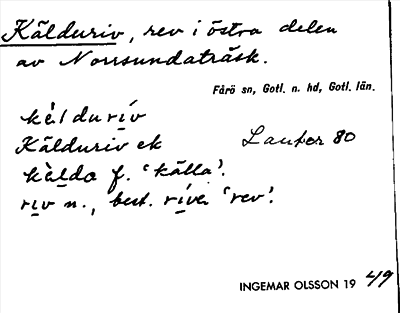 Källduriv, rev i östra delen
av Norrsundaträsk.
Fårö sn, Gotl. n. hd, Gotl. län.
kè̀lduri̱v
Källduriv ek Laufer 80
kèlda f. 'källa'.
ri̱v n., best. ri̱və 'rev'.
INGEMAR OLSSON 19 49